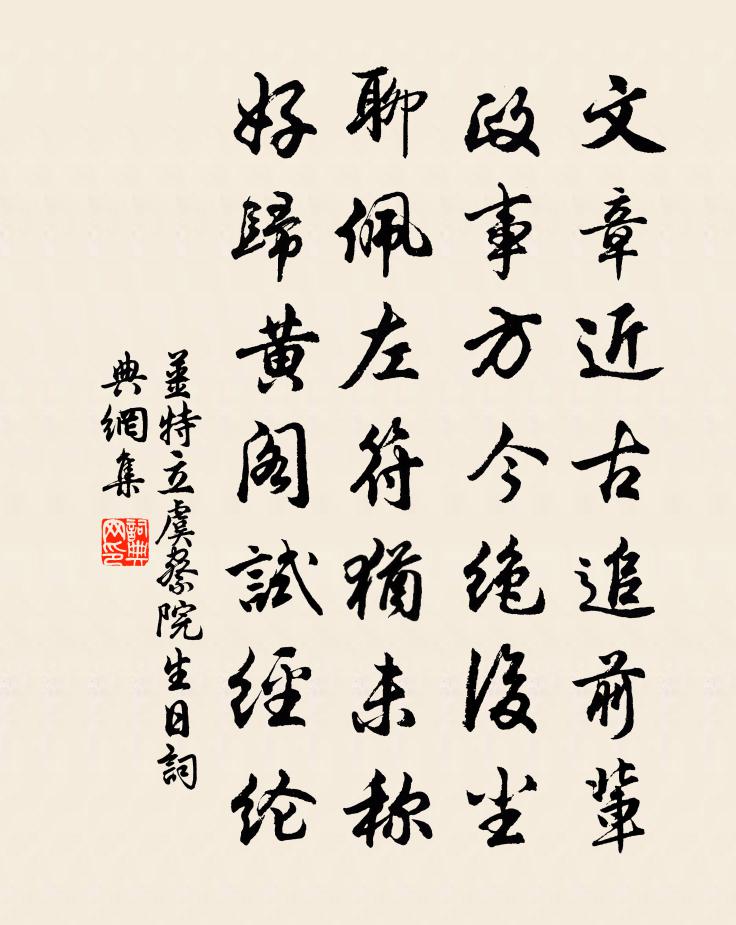 文章近古追前輩
政事方今绝後尘
聊佩左符猶未称
好歸黄阁試經纶
薑特立虞察院生日詞
典網集
詞典网印